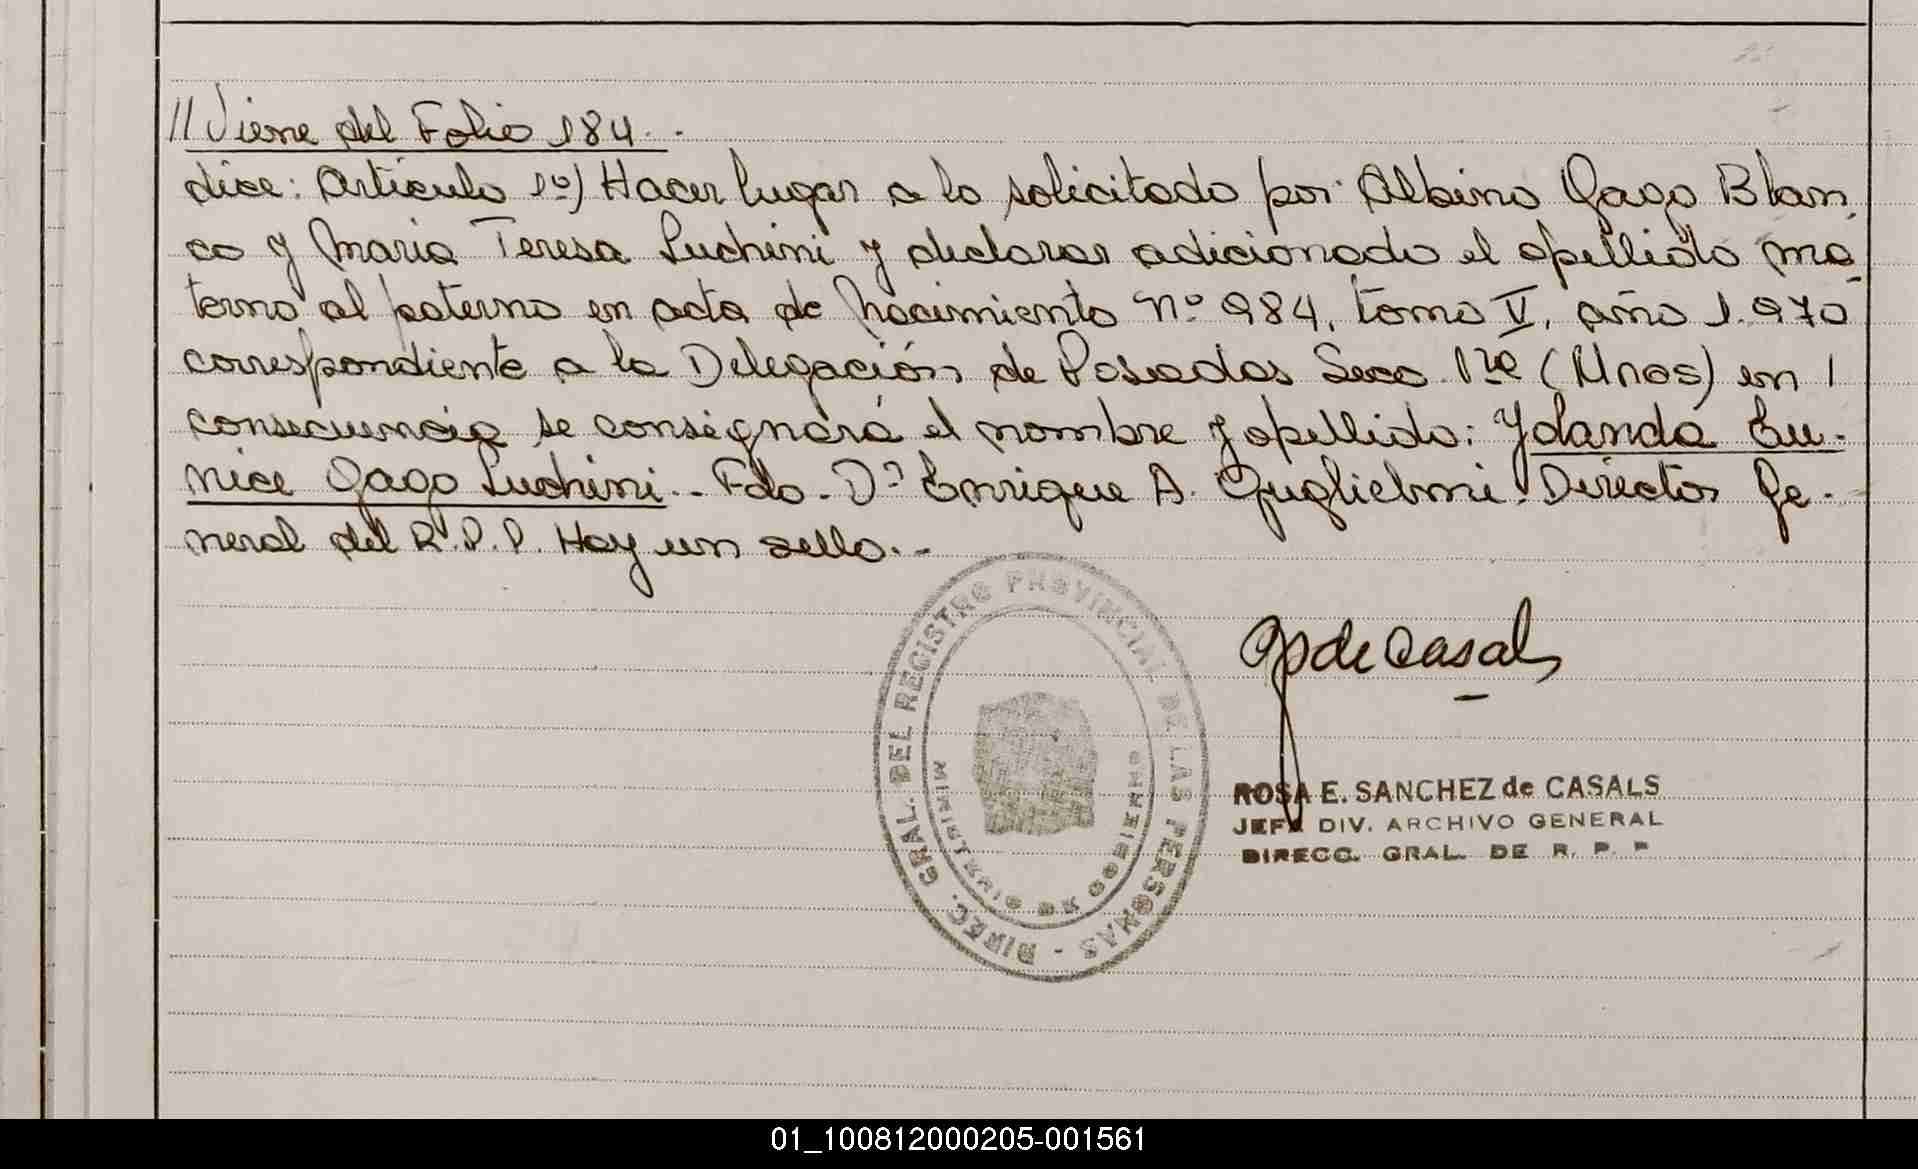 // Viene del Folio 184.-
dice: Artículo 1º) Hacer lugar a lo solicitado por Albino Gago Blan-
co y Maria Teresa Luchini y declarar adicionado el apellido ma-
terno al paterno en acta de Nacimiento Nº 984, tomo V, año 1.970
correspondiente a la Delegación de Posadas Secc. 1ra (Mnes) en /
consecuencia se consignará el nombre y apellido: Yolanda Eu-
nice Gago Luchini.- Fdo. Dº Enrique A. Guglielmi. Director Ge-
neral del R.P.P. Hay un sello.-
DIREC. GRAL. DEL REGISTRO PROVINCIAL DE LAS PERSONAS -
MINISTERIO DE GOBIERNO
de Casals
ROSA E. SANCHEZ de CASALS
JEFA DIV. ARCHIVO GENERAL
DIRECC. GRAL. DE R. P. P
01_100812000205-001561